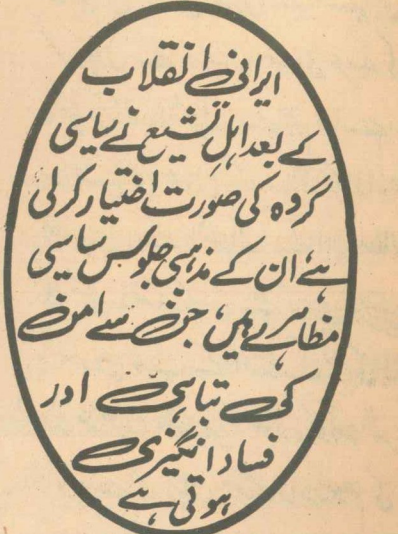 ایرانی انقلاب
کے بعد اہل تشیع نے سیاسی
گروہ کی صورت اختیار کرلی
ہے، ان کے مذہبی جلوس سیاسی
مظاہرے ہیں، جن سے امن
کی تباہی اور
فساد انگیزی
ہوتی ہے